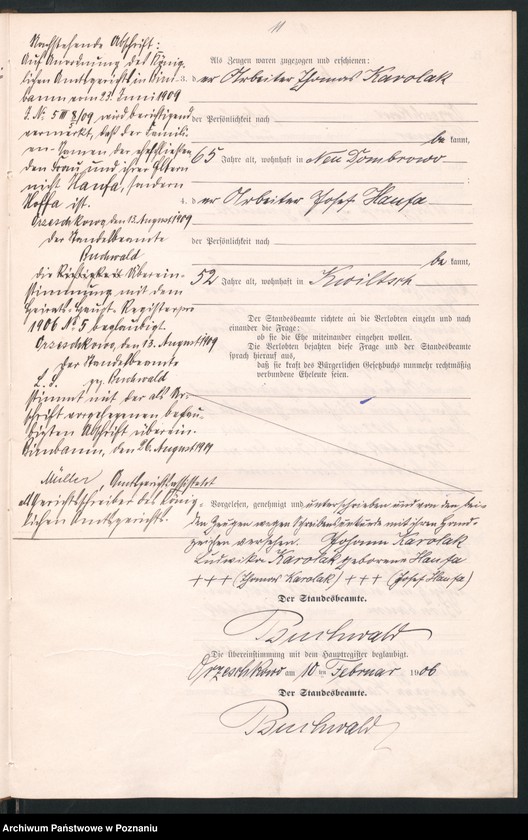 11
Nachstehende Abschrift:
Auf Anordnung des König-
lichen Amtsgerichts in Birn-
baum vom 23. Juni 1909
J. No 5 III 8/09 wird berichtigend
vermerkt, daß der Famili-
en-Namen der eheschließen
den Frau und ihrer Eltern
nicht Haufa, sondern
Hoffa ist.
Orzeschkowo, den 13. August 1909
Der Standesbeamte
Buchwald
die Richtigkeit Überein-
stimmung mit dem
Heirats-Haupt-Register pro
1906 No 5 beglaubigt.
Orzeschkowo, den 13. August 1909
Der Standesbeamte
L. S. gez. Buchwald
stimmt mit der als Ur-
schrift vorgesehenen beglau-
bigten Abschrift überein.
Birnbaum, den 26. August 1909
Müller, Amtsgerichtsassistent
als Gerichtsschreiber des König-
lichen Amtsgerichts.
Als Zeugen waren zugezogen und erschienen:
3. der Arbeiter Thomas Karolak
der Persönlichkeit nach
be kannt,
65 Jahre alt, wohnhaft in Neu Dombrowo
4. der Arbeiter Josef Haufa
der Persönlichkeit nach
be kannt,
52 Jahre alt, wohnhaft in Kwiltsch
Der Standesbeamte richtete an die Verlobten einzeln und nach
einander die Frage:
ob sie die Ehe miteinander eingehen wollen.
Die Verlobten bejahten diese Frage und der Standesbeamte
sprach hierauf aus,
daß sie kraft des Bürgerlichen Gesetzbuchs nunmehr rechtmäßig
verbundene Eheleute seien.
Vorgelesen, genehmigt und unterschrieben und von den bei-
den Zeugen wegen Schreibensunkunde mit ihren Hand-
zeichen versehen. Johann Karolak
Ludwika Karolak geborene Haufa
+++ (Thomas Karolak) +++ (Josef Haufa)
Der Standesbeamte.
Buchwald
Die Übereinstimmung mit dem Hauptregister beglaubigt.
Orzeschkowo am 10 ten Februar 1906
Der Standesbeamte.
Buchwald
Archiwum Państwowe w Poznaniu